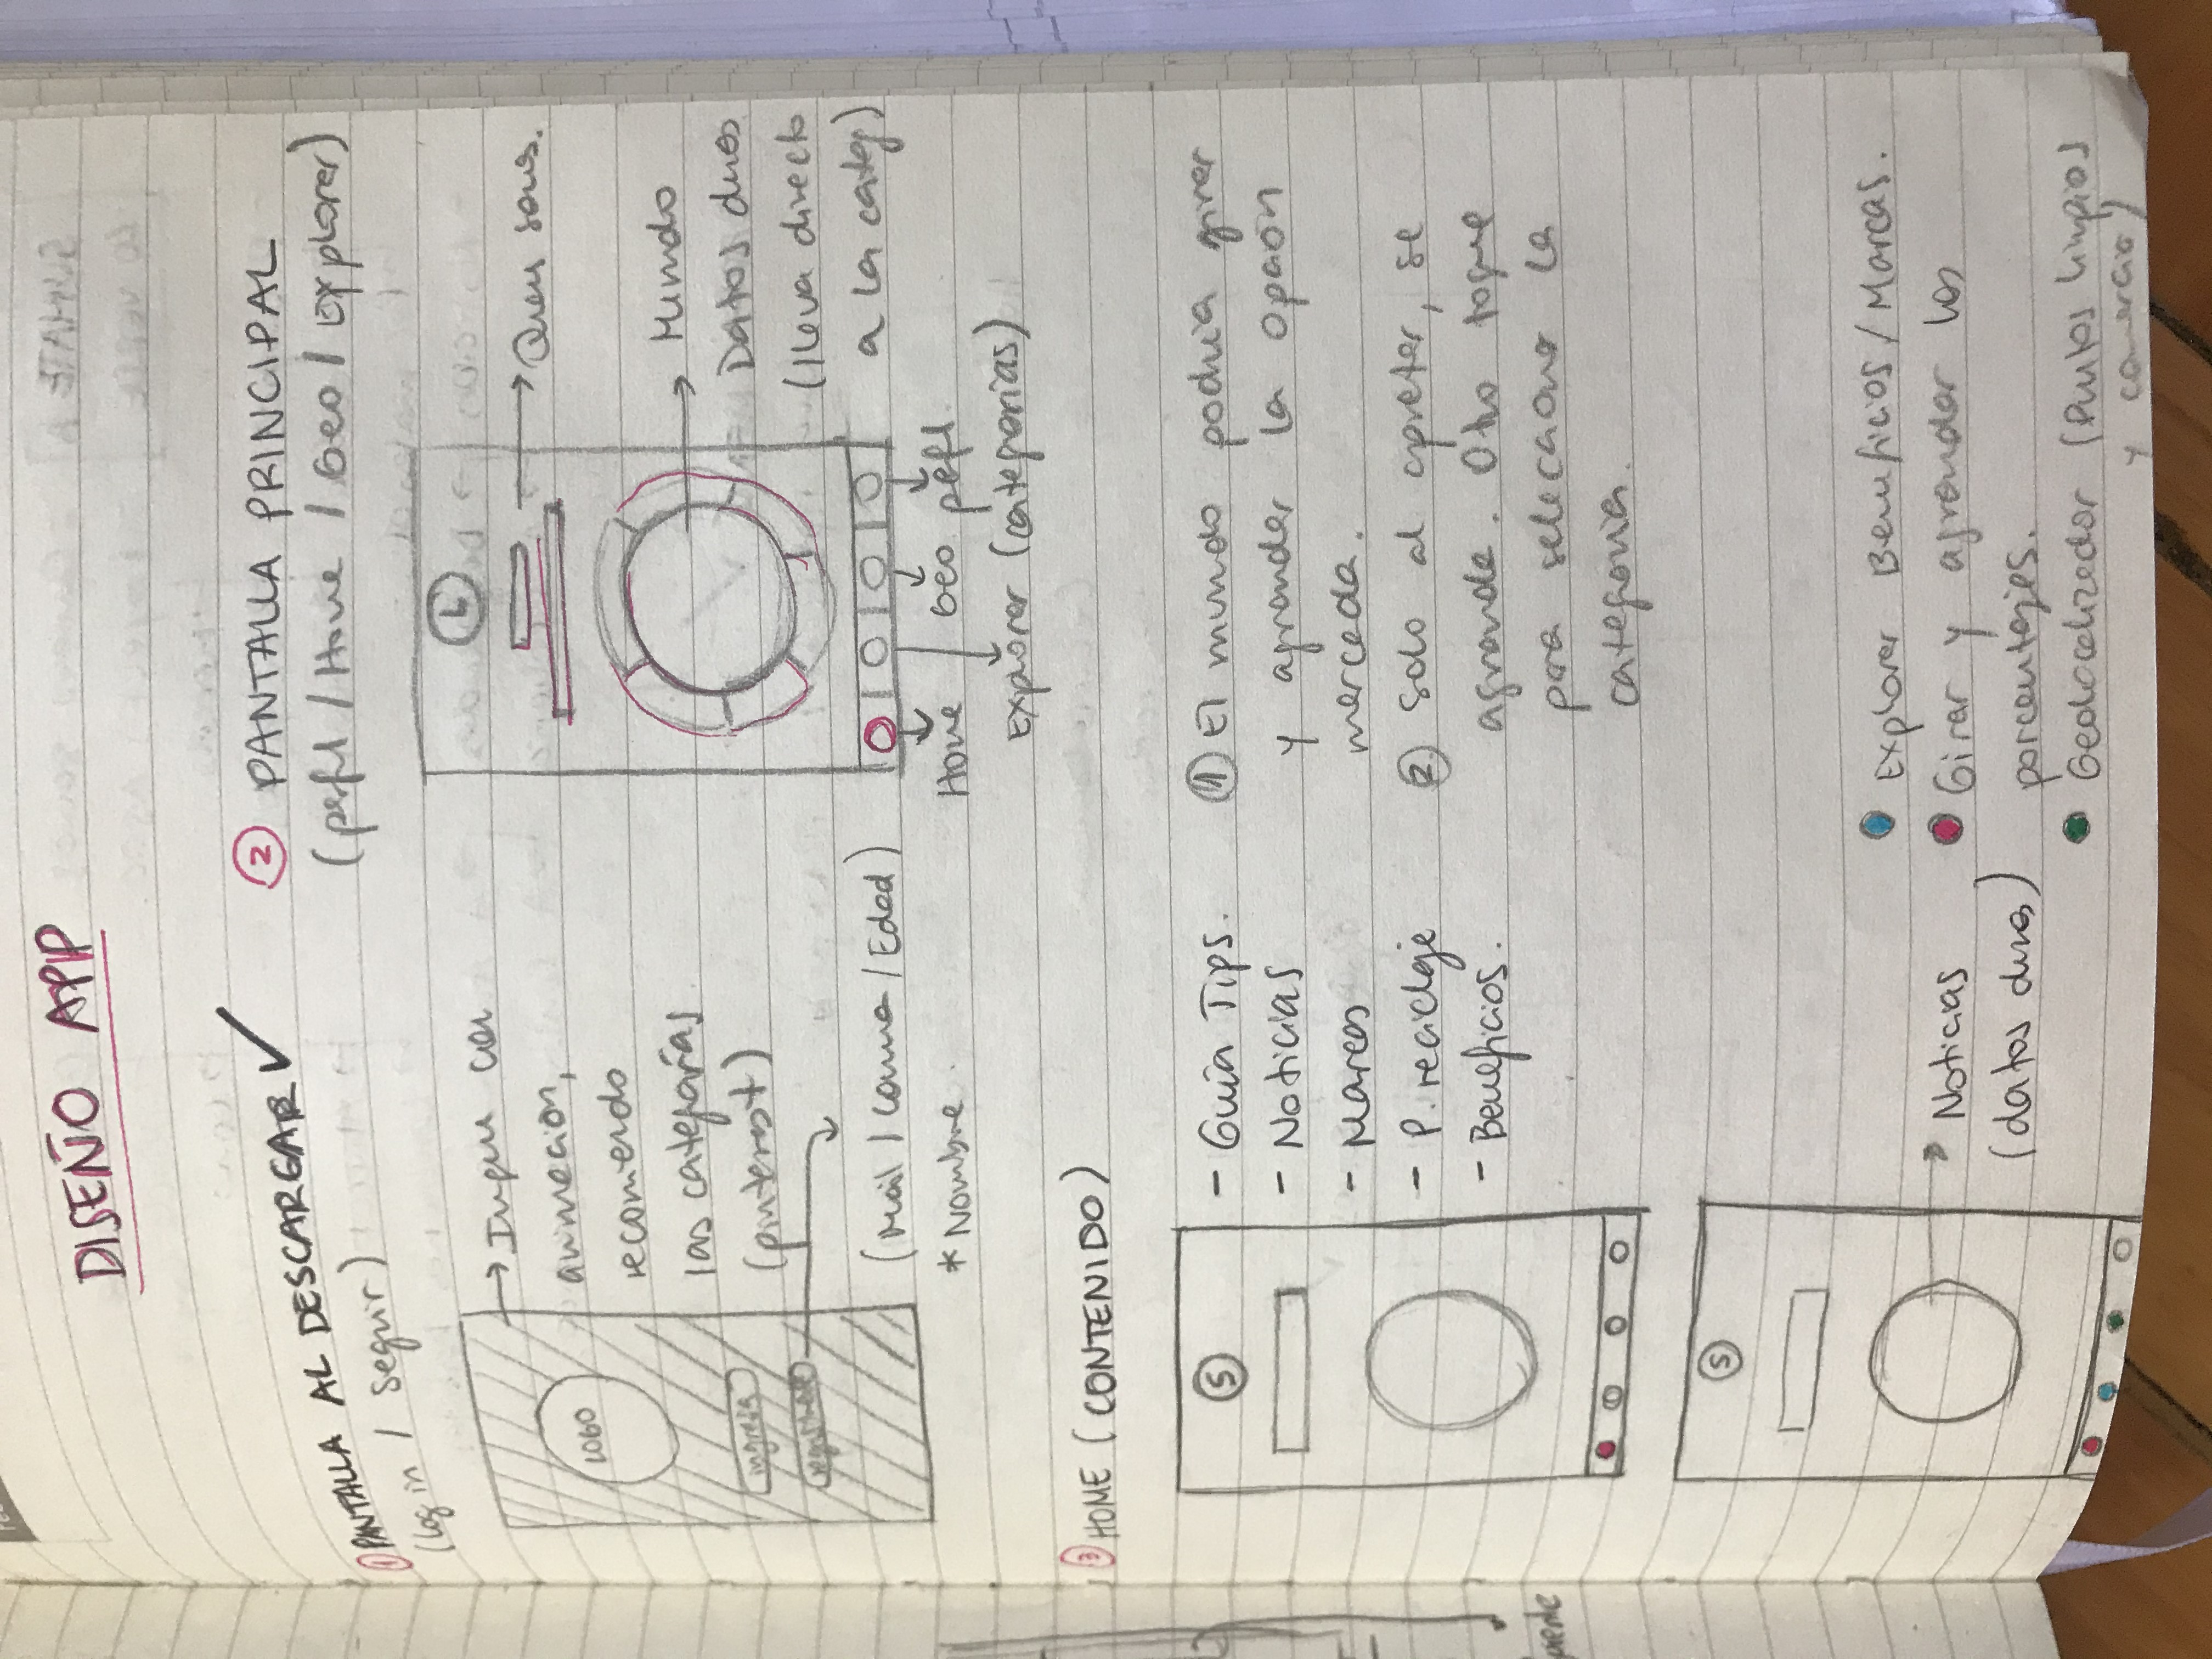 DISEÑO APP
① PANTALLA AL DESCARGAR ✓
(Log in / Seguir)
LOGO
ingresa
registrate
→ Ingrese con
animación,
recomiendo
las categorías
(pinterest)
(Mail / Comuna / Edad)
* Nombre.
② PANTALLA PRINCIPAL
(perfil / Home / Geo / Explorer)
L
→ Quien somos.
→ Mundo
Datos duros
(lleva directo
a la categ)
Home
Geo
perfil
Explorar (categorías)
③ HOME (CONTENIDO)
S
- Guía Tips.
- Noticias
- Marcas
- P. reciclaje
- Beneficios.
① El mundo podría girar
y agrandar la opción
marcada.
② Solo al apretar, se
agranda. Otro toque
para seleccionar la
categoría.
S
Noticias
(datos duros)
Explorar Beneficios / Marcas.
Girar y agrandar los
porcentajes.
Geolocalizador (Puntos limpios
y comercio)